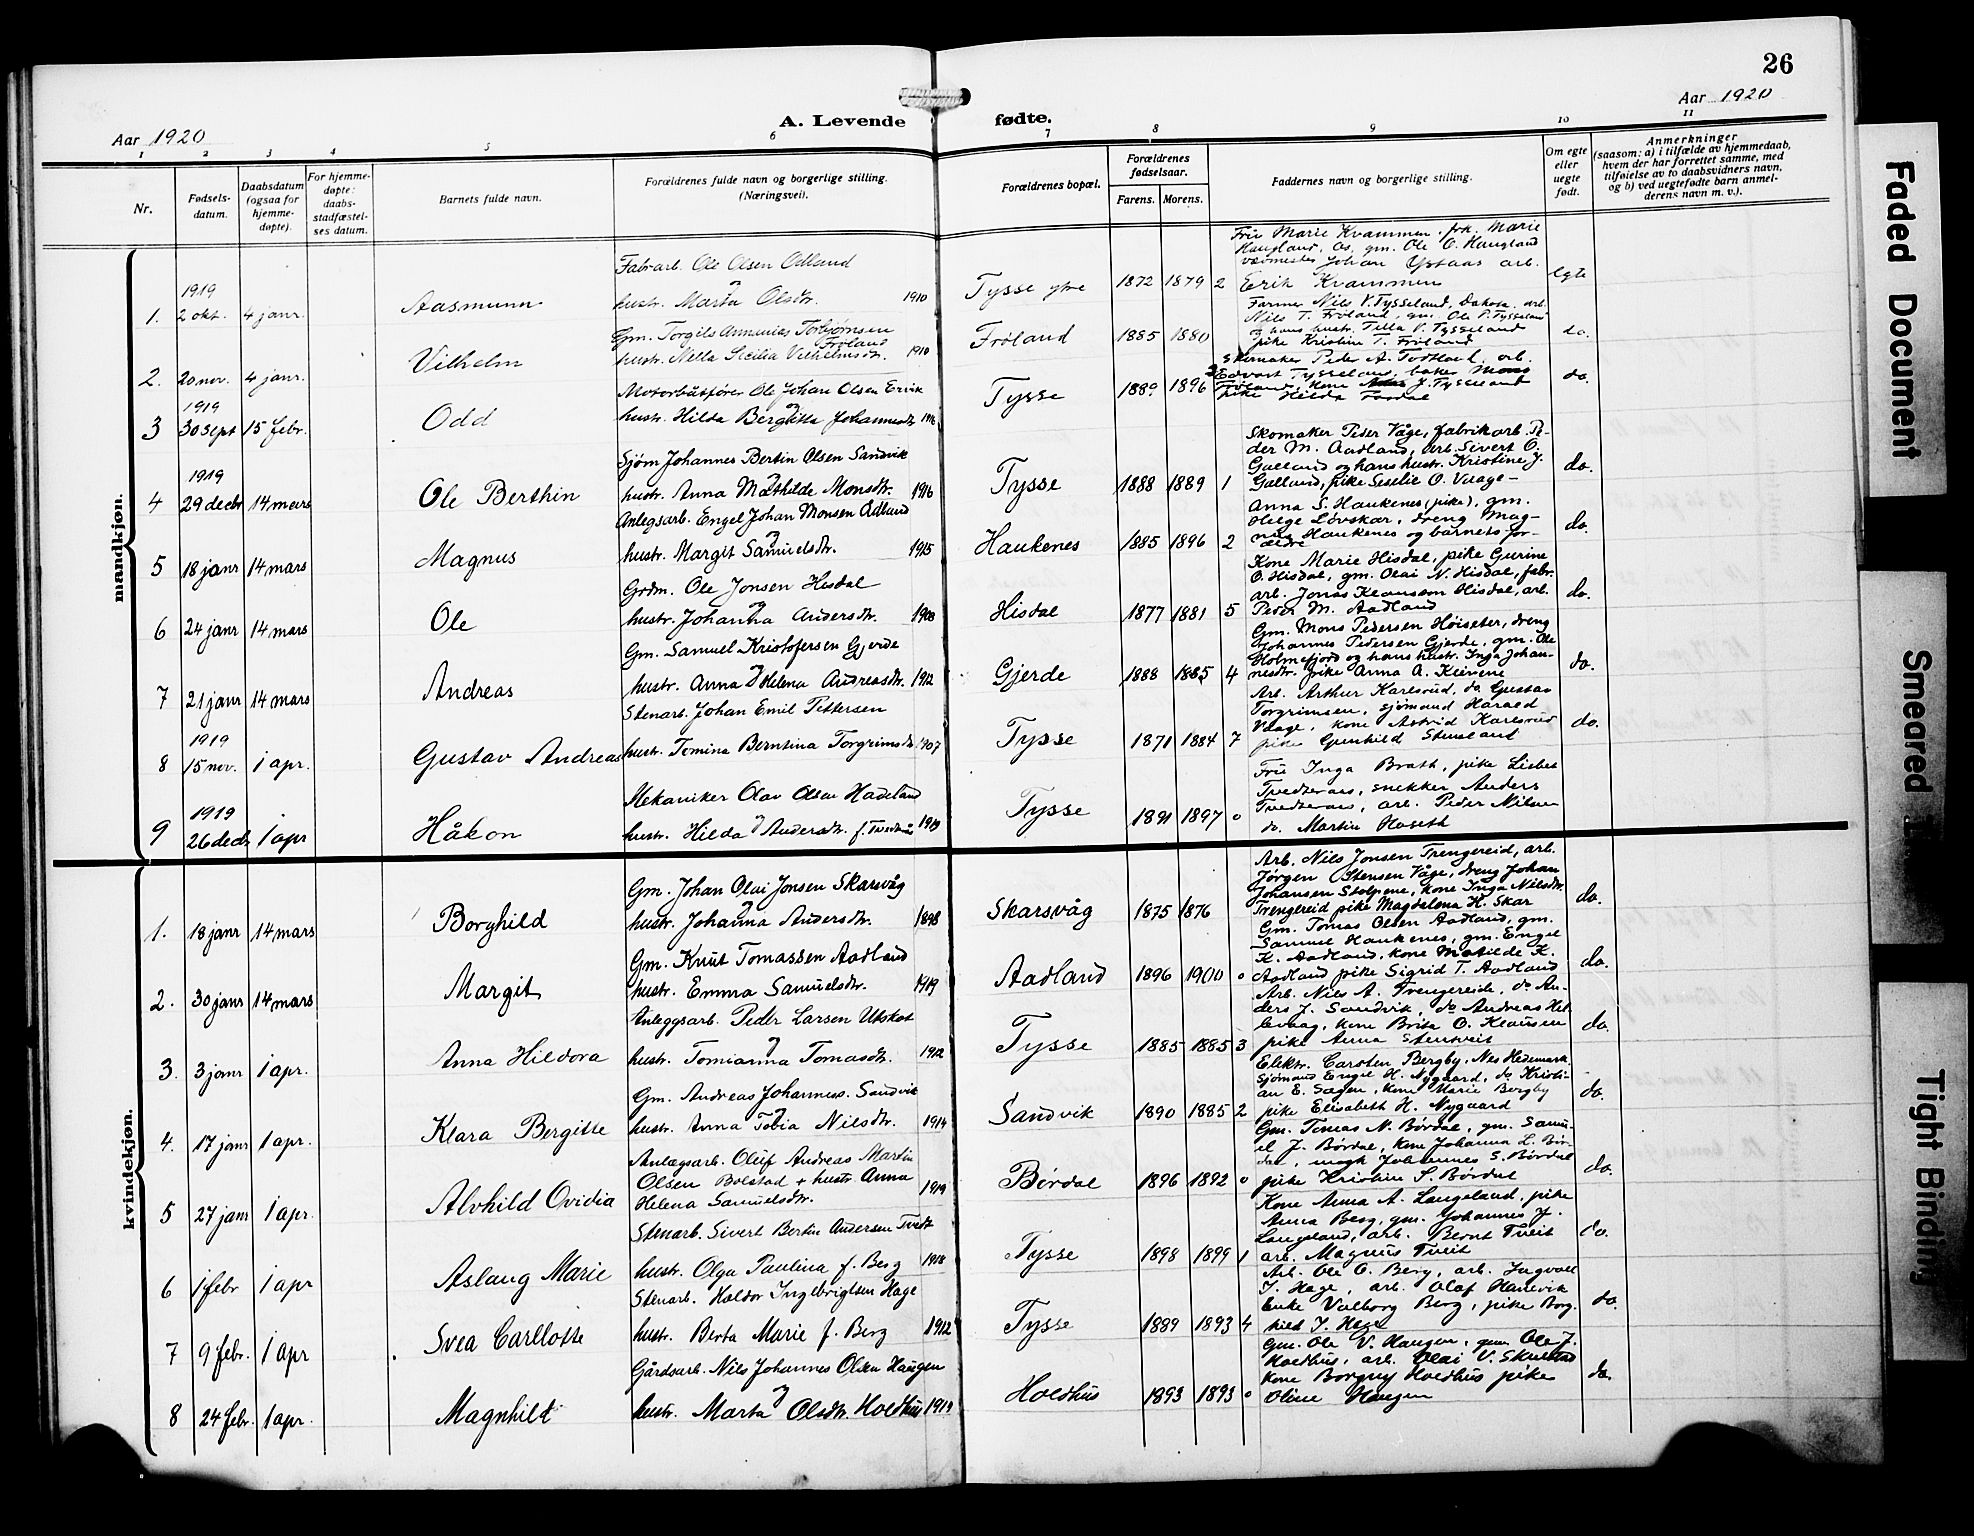 26
Aar 1920
A. Levende fødte.
Aar 1920
1 2 3 4 5 6 7 8 9 10 11
Nr.
Fødsels-
datum.
Daabsdatum
(ogsaa for
hjemme-
døpte).
For hjemme-
døpte:
daabs-
stadfæstel-
ses datum.
Barnets fulde navn.
Forældrenes fulde navn og borgerlige stilling.
(Næringsvei).
Forældrenes bopæl.
Forældrenes
fødselsaar.
Farens. Morens.
Faddernes navn og borgerlige stilling.
Om egte
eller
uegte
født.
Anmerkninger
(saasom: a) i tilfælde av hjemmedaab,
hvem der har forrettet samme, med
tilføielse av to daabsvidners navn,
og b) ved uegtefødte barn anmel-
derens navn m. v.).
mandkjøn.
1. 1919
2 okt. 4 janr. Aasmunn
Fabrarb. Ole Olsen Odland
og
hustr. Marta Olsdtr. 1910
Tysse ytre 1872 1879 2
Fru Marie Kvammen, frk. Marie
Haugland, Os, gm. Ole O. Haugland
vævmester Johan Ystaas arb.
Erik Kvammen
egte
2. 20 nov. 4 janr. Vilhelm
Gm. Torgils Annanias Torbjørnsen
Frøland
hustr. Nella Sicilia Vilhelmsdtr. 1910
Frøland 1885 1880
Farmer Nils V. Tysseland, Dakota, arb.
Nils T. Frøland, gm. Ole V. Tysseland
og hans hustr. Tilla V. Tysseland
pike Kristine T. Frøland
do.
3 1919
30 sept 15 febr. Odd
Motorbåtfører Ole Johan Olsen Ervik
og
hustr. Hilda Bergitte Johannesdtr. 1916
Tysse 1889 1896 2
Skomaker Peder A. Todland, arb.
Edvart Tysseland, baker Mons
Frøland, kone J. Tysseland
pike Hilda
do.
4 1919
29 decbr 14 mars Ole Berthin
Sjøm Johannes Bertin Olsen Sandvik
og
hustr. Anna Mathilde Monsdtr. 1916
Tysse 1888 1889 1
Skomaker Peder Våge, fabrikarb. Pe-
der M. Aadland, arb. Sivert O.
Galland og hans hustr. Kristine J.
Galland, pike Seselie O. Vaage -
do.
5 18 janr 14 mars Magnus
Anlegsarb. Engel Johan Monsen Ådland
og
hustr. Margit Samuelsdtr. 1915
Haukenes 1885 1896 2
Anna S. Haukenes (pike), gm.
Helge Løvskar, dreng Mag-
nus Haukenes og barnets for-
ældre
do.
6 24 janr 14 mars Ole
Grdm. Ole Jonsen Hisdal
og
hustr. Johanna Andersdtr. 1908
Hisdal 1877 1881 5
Kone Marie Hisdal, pike Gurine
O. Hisdal, gm. Olai N. Hisdal, fabr.
arb. Jonas Klausen Hisdal, arb.
Peder M. Aadland
do.
7 21 janr 14 mars Andreas
Gm. Samuel Kristofersen Gjerde
og
hustr. Anna Helena Andreasdtr. 1912
Gjerde 1888 1885 4
Gm. Mons Pedersen Høiseter, dreng
Johannes Pedersen Gjerde, gm. Ole
Holmefjord og hans hustr. Inga Johan-
nesdtr. pike Anna A. Kleivene
do.
8 1919
15 nov. 1 apr. Gustav Andreas
Stenarb. Johan Emil Pettersen
hustr. Tomina Berntina Torgrimsdtr. 1907
Tysse 1871 1884 7
Arb. Arthur Karlsrud, do Gustav
Torgrimsen, sjømand Harald
Vaage, kone Astrid Karlsrud
pike Gunhild Stensland
do.
9 1919
26 decb 1 apr Håkon
Mekaniker Olav Olsen Hadeland
og
hustr. Hilda Andersdtr. f. Tvedteraas 1919
Tysse 1891 1897 0
Fru Inga Brath, pike Lisbet
Tvedteraas, snekker Anders
Tvedteraas, arb. Peder Nilsen
do. Martin Haseth
kvindekjøn.
1. 18 janr 14 mars Borghild
Gm. Johan Olai Jonsen Skarsvåg
og
hustr. Johanna Andersdtr. 1898
Skarsvåg 1875 1876
Arb. Nils Jonsen Trengereid, arb.
Jørgen Stensen Våge, dreng Johan
Johansen Stolpene, kone Inga Nilsdtr.
Trengereid pike Magdalena H. Skar
do.
2. 30 janr 14 mars Margit
Gm. Knut Tomassen Aadland
hustr. Emma Samuelsdtr. 1919
Aadland 1896 1900 0
Gm. Tomas Olsen Aadland, gm.
Samuel Haukenes, gm. Engel
K. Aadland, kone Matilde K.
Aadland pike Sigrid T. Aadland
do.
3. 3 janr 1 apr. Anna Hildora
Anleggsarb. Peder Larsen Utskot
og
hustr. Tomianna Tomasdtr. 1912
Tysse 1885 1885 3
Arb. Nils A. Trengereide, do An-
ders J. Sandvik, do Andreas Hel-
levaag, kone Brita O. Klausen
pike Anna Stensveit
do.
4. 17 janr 1 apr. Klara Bergitte
Gm. Andreas Johannes. Sandvik
og
hustr. Anna Tobia Nilsdtr. 1914
Sandvik 1890 1885 2
Elektr. Carsten Bergby, Nes Hedemark
Sjømand Engel H. Nygaard, do Kristi-
an E. Sagen, kone Marie Bergby
pike Elisabeth H. Nygaard
do.
5 27 janr 1 apr. Alvhild Ovidia
Anlægsarb. Oluf Andreas Martin
Olsen Bolstad + hustr Anna
Helena Samuelsdtr. 1919
Børdal 1896 1892 0
Gm. Tomas N. Børdal, gm. Samu-
el J. Børdal, kone Johanna L. Bør-
dal, ungk Johannes S. Børdal
pike Kristine S. Børdal
do.
6 1 febr 1 apr Aslaug Marie
Stenarb. Sivert Bertin Andersen Tveit
hustr. Olga Paulina f. Berg 1918
Tysse 1898 1899 1
Kone Anna A. Langeland, pike
Anna Berg, gm. Johannes J.
Langeland, arb. Bernt Tveit
arb. Magnus Tveit
do.
7 9 febr. 1 apr Svea Carllotte
Stenarb. Haldor Ingebrigtsen Hage
hustr. Berta Marie f. Berg 1912
Tysse 1889 1893 4
Arb. Ole O. Berg, arb. Ingvall
I. Hage, arb. Olaf Hanevik
Enke Valborg Berg, pike Borg-
hild I. Hage
do.
8 24 febr. 1 apr. Magnhild
Gårdsarb. Nils Johannes Olsen Haugen
og
hustr. Marta Olsdtr. Holdhus 1919
Holdhus 1893 1893 0
Gm. Ole V. Haugen, gm Ole J.
Holdhus, arb. Olai V. Skulstad
kone Borgny Holdhus pike
Oline Haugen
do.
Faded Document
Smeared
Tight Binding